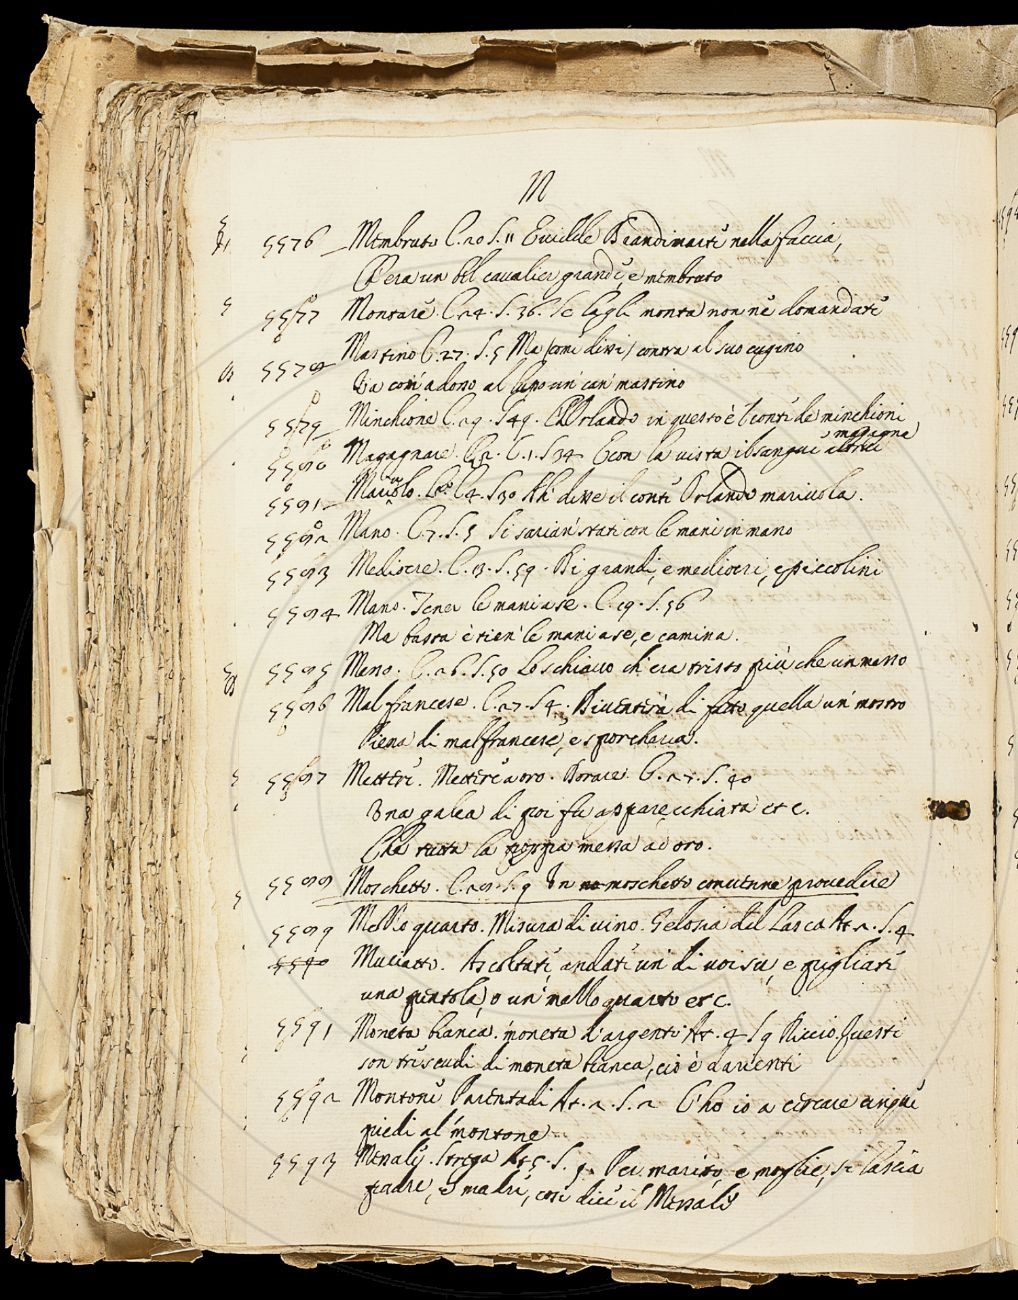 M
5576 Membruto C. 20 S. 11 Euidde Brandimarte nella faccia,
Ch'era un bel cavalier grande, e membruto
5577 Montare. C. 24. S. 36. Se l'agli monta non ne domandate
5578 Mastino C. 27. S. 5 Ma (come dissi) contra al suo cugino
Va com' adosso al lupo un' can' mastino
5579 Minchione C. 29. S 49. Ch'Orlando in questo è 'l conte de minchioni
5580 Magagnare. C. 1. S 34 E con la vista il sangue altrui magagna
5581 Mariolo. C 4. S 30 Ah disse il conte Orlando mariuola.
5582 Mano. C. 7. S. 5 Si sarian' stati con le mani in mano
5583 Mediocre. C. 13. S. 59. Di grandi, e mediocri, e piccolini
5584 Mano. Tener le mani a se. C. 19. S. 56
Ma basta e tien' le mani a se, e camina.
5585 Mano. C. 26. S. 50 Lo schiavo ch' era tristo più che un mano
5586 Mal francese. C. 27. S 4. Diventerà di fatto quella un' mostro
Piena di mal francese, e sporcheria.
5587 Mettere. Mettere a oro. Dorare. C. S. 40
Una galea di poi fu apparecchiata et c.
Che tutta la poppa messa ad oro.
5588 Moschetto. C. S. 9 Un moschetto conviene provedere
5589 Mezzo quarto. Misura di vino. Gelosia del Lasca At 2. S. 4
5590 Muciatto. Ascoltate, andate un' di voi sù, e pigliate
una pentola, o un' mezzo quarto et c.
5591 Moneta bianca. moneta d'argento. At. 4 S 9 Riccio. Questi
son tre scudi di moneta bianca, cioè d'arienti
5592 Montone Parentadi At. 2. S. 2 C'ho io a cercare cinque
piedi al' montone
5593 Messale. Strega At 5. S. 9. Per marito, e moglie, si lascia
padre, e madre, così dice il Messale